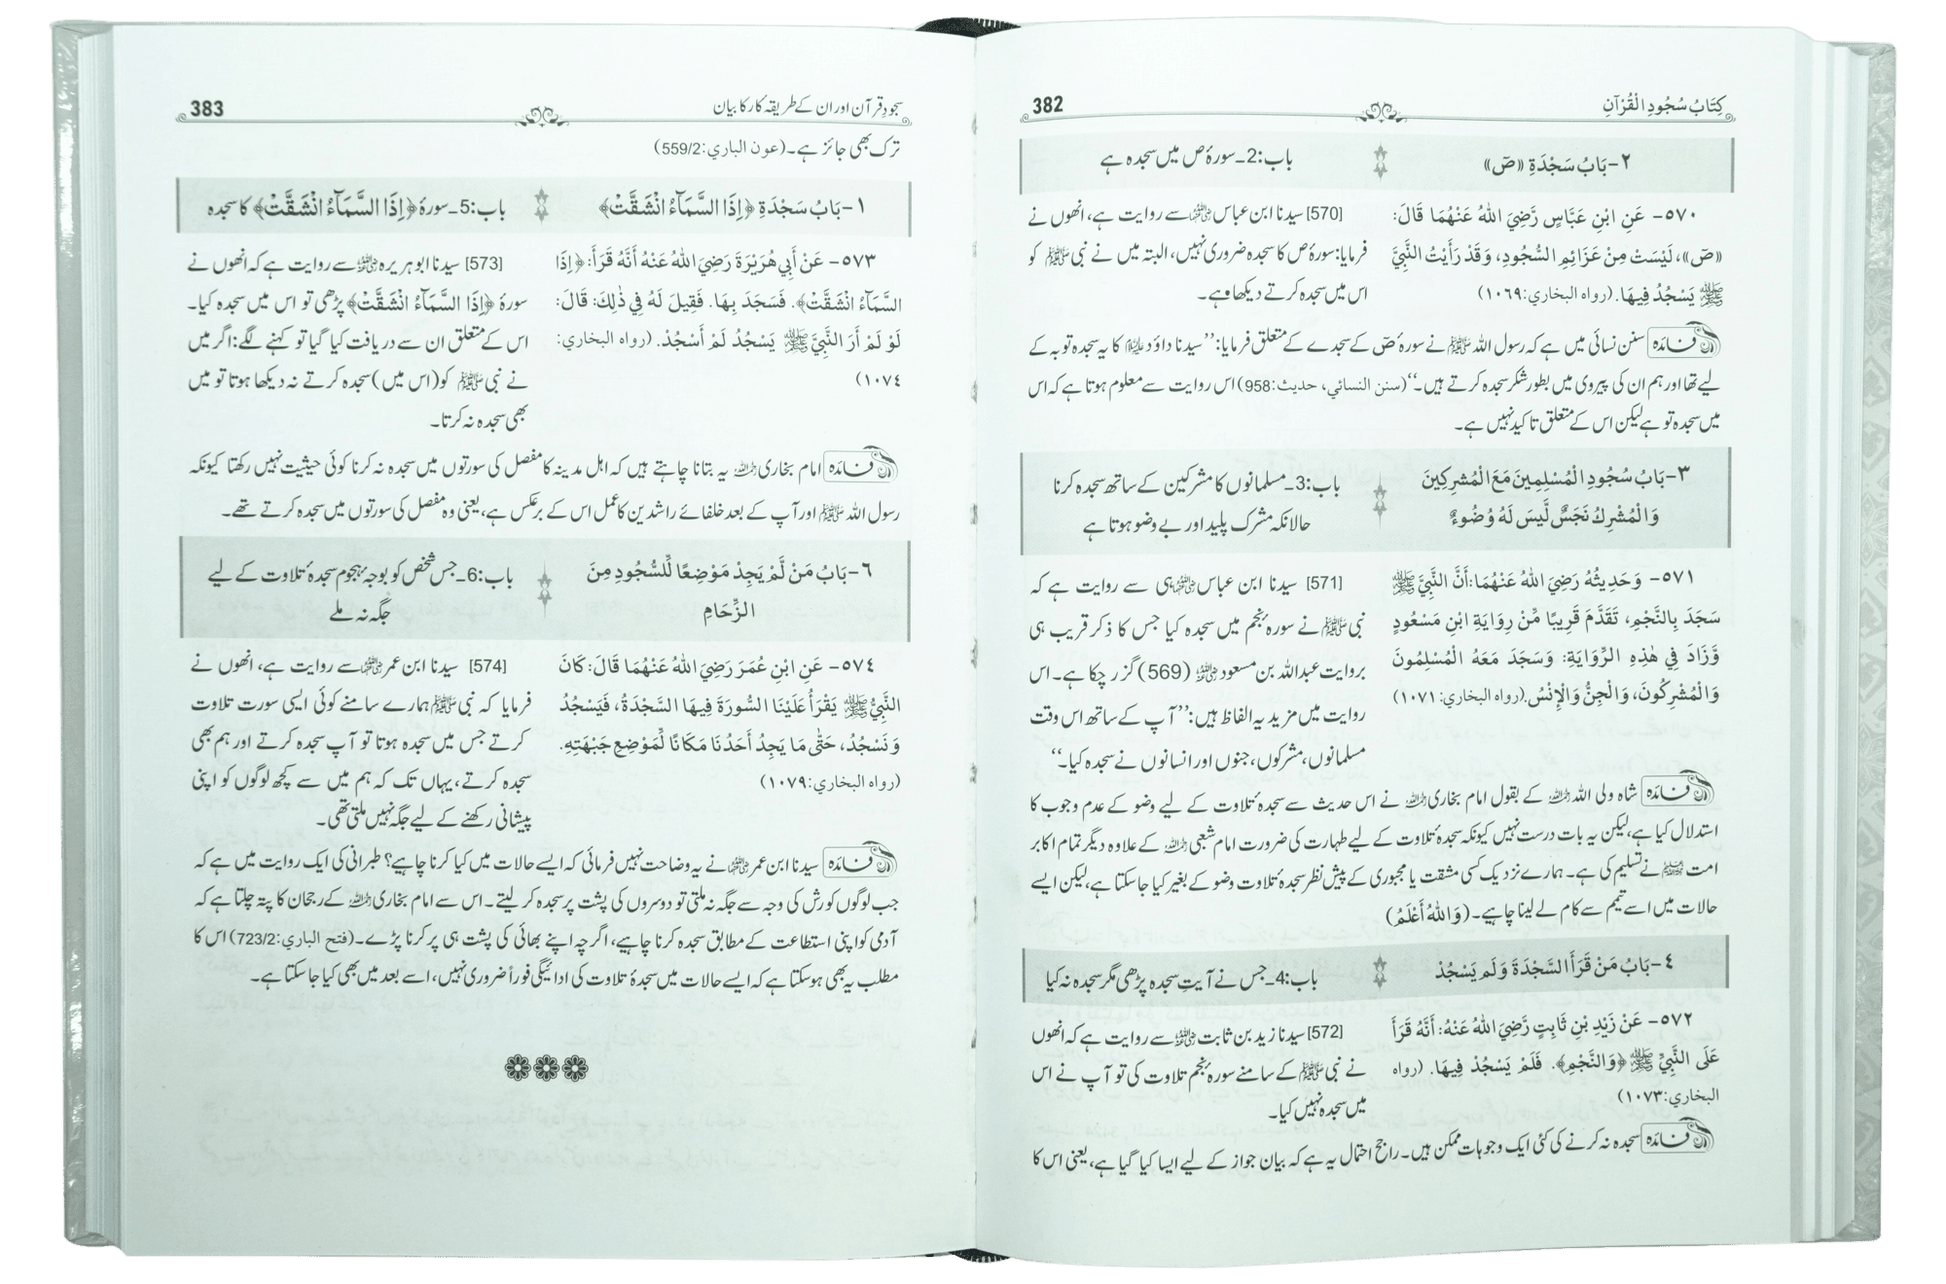 كِتَابُ سُجُودِ الْقُرْآنِ 382
٢- بَابُ سَجْدَةِ «صٓ»
باب:2۔ سورۂ ص میں سجدہ ہے
٥٧٠- عَنِ ابْنِ عَبَّاسٍ رَّضِيَ اللهُ عَنْهُمَا قَالَ:
«صٓ»، لَيْسَتْ مِنْ عَزَائِمِ السُّجُودِ، وَقَدْ رَأَيْتُ النَّبِيَّ
ﷺ يَسْجُدُ فِيهَا. (رواه البخاري:١٠٦٩)
[570] سیدنا ابن عباس ؓ سے روایت ہے، انھوں نے
فرمایا: سورۂ ص کا سجدہ ضروری نہیں، البتہ میں نے نبی ﷺ کو
اس میں سجدہ کرتے دیکھا ہے۔
فائدہ سنن نسائی میں ہے کہ رسول اللہ ﷺ نے سورۂ صٓ کے سجدے کے متعلق فرمایا: ’’سیدنا داؤد علیہ السلام کا یہ سجدہ توبہ کے
لیے تھا اور ہم ان کی پیروی میں بطور شکر سجدہ کرتے ہیں۔‘‘ (سنن النسائي، حديث:958) اس روایت سے معلوم ہوتا ہے کہ اس
میں سجدہ تو ہے لیکن اس کے متعلق تاکید نہیں ہے۔
٣- بَابُ سُجُودِ الْمُسْلِمِينَ مَعَ الْمُشْرِكِينَ
وَالْمُشْرِكُ نَجَسٌ لَّيْسَ لَهُ وُضُوءٌ
باب:3۔ مسلمانوں کا مشرکین کے ساتھ سجدہ کرنا
حالانکہ مشرک پلید اور بے وضو ہوتا ہے
٥٧١- وَحَدِيثُهُ رَضِيَ اللهُ عَنْهُمَا: أَنَّ النَّبِيَّ ﷺ
سَجَدَ بِالنَّجْمِ، تَقَدَّمَ قَرِيبًا مِّنْ رِوَايَةِ ابْنِ مَسْعُودٍ
وَّزَادَ فِي هٰذِهِ الرِّوَايَةِ: وَسَجَدَ مَعَهُ الْمُسْلِمُونَ
وَالْمُشْرِكُونَ، وَالْجِنُّ وَالْإِنْسُ. (رواه البخاري: ١٠٧١)
[571] سیدنا ابن عباس ؓ ہی سے روایت ہے کہ
نبی ﷺ نے سورۂ نجم میں سجدہ کیا جس کا ذکر قریب ہی
بروایت عبداللہ بن مسعود ؓ (569) گزر چکا ہے۔ اس
روایت میں مزید یہ الفاظ ہیں: ’’آپ کے ساتھ اس وقت
مسلمانوں، مشرکوں، جنوں اور انسانوں نے سجدہ کیا۔‘‘
فائدہ شاہ ولی اللہ رحمہ اللہ کے بقول امام بخاری رحمہ اللہ نے اس حدیث سے سجدۂ تلاوت کے لیے وضو کے عدم وجوب کا
استدلال کیا ہے، لیکن یہ بات درست نہیں کیونکہ سجدۂ تلاوت کے لیے طہارت کی ضرورت امام شعبی رحمہ اللہ کے علاوہ دیگر تمام اکابر
امت نے تسلیم کی ہے۔ ہمارے نزدیک کسی مشقت یا مجبوری کے پیش نظر سجدۂ تلاوت وضو کے بغیر کیا جا سکتا ہے، لیکن ایسے
حالات میں اسے تیمم سے کام لے لینا چاہیے۔ (وَاللهُ أَعْلَمُ)
٤- بَابُ مَنْ قَرَأَ السَّجْدَةَ وَلَم يَسْجُدْ
باب:4۔ جس نے آیتِ سجدہ پڑھی مگر سجدہ نہ کیا
٥٧٢- عَنْ زَيْدِ بْنِ ثَابِتٍ رَّضِيَ اللهُ عَنْهُ: أَنَّهُ قَرَأَ
عَلَى النَّبِيِّ ﷺ ﴿وَالنَّجْمِ﴾. فَلَمْ يَسْجُدْ فِيهَا. (رواه
البخاري:١٠٧٣)
[572] سیدنا زید بن ثابت ؓ سے روایت ہے کہ انھوں
نے نبی ﷺ کے سامنے سورۂ نجم تلاوت کی تو آپ نے اس
میں سجدہ نہیں کیا۔
فائدہ سجدہ نہ کرنے کی کئی ایک وجوہات ممکن ہیں۔ راجح احتمال یہ ہے کہ بیان جواز کے لیے ایسا کیا گیا ہے، یعنی اس کا
سجودِ قرآن اور ان کے طریقہ کار کا بیان 383
ترک بھی جائز ہے۔ (عون الباري:559/2)
١- بَابُ سَجْدَةِ ﴿إِذَا السَّمَآءُ انْشَقَّتْ﴾
باب:5۔ سورۂ ﴿إِذَا السَّمَآءُ انْشَقَّتْ﴾ کا سجدہ
٥٧٣- عَنْ أَبِي هُرَيْرَةَ رَضِيَ اللهُ عَنْهُ أَنَّهُ قَرَأَ: ﴿إِذَا
السَّمَآءُ انْشَقَّتْ﴾. فَسَجَدَ بِهَا. فَقِيلَ لَهُ فِي ذٰلِكَ: قَالَ:
لَوْ لَمْ أَرَ النَّبِيَّ ﷺ يَسْجُدُ لَمْ أَسْجُدْ. (رواه البخاري:
١٠٧٤)
[573] سیدنا ابوہریرہ ؓ سے روایت ہے کہ انھوں نے
سورۂ ﴿إِذَا السَّمَآءُ انْشَقَّتْ﴾ پڑھی تو اس میں سجدہ کیا۔
اس کے متعلق ان سے دریافت کیا گیا تو کہنے لگے: اگر میں
نے نبی ﷺ کو (اس میں) سجدہ کرتے نہ دیکھا ہوتا تو میں
بھی سجدہ نہ کرتا۔
فائدہ امام بخاری رحمہ اللہ یہ بتانا چاہتے ہیں کہ اہل مدینہ کا مفصل کی سورتوں میں سجدہ نہ کرنا کوئی حیثیت نہیں رکھتا کیونکہ
رسول اللہ ﷺ اور آپ کے بعد خلفائے راشدین کا عمل اس کے برعکس ہے، یعنی وہ مفصل کی سورتوں میں سجدہ کرتے تھے۔
٦- بَابُ مَنْ لَّمْ يَجِدْ مَوْضِعًا لِّلسُّجُودِ مِنَ
الزِّحَامِ
باب:6۔ جس شخص کو بوجہ ہجوم سجدۂ تلاوت کے لیے
جگہ نہ ملے
٥٧٤- عَنِ ابْنِ عُمَرَ رَضِيَ اللهُ عَنْهُمَا قَالَ: كَانَ
النَّبِيُّ ﷺ يَقْرَأُ عَلَيْنَا السُّورَةَ فِيهَا السَّجْدَةُ، فَيَسْجُدُ
وَنَسْجُدُ، حَتّٰى مَا يَجِدُ أَحَدُنَا مَكَانًا لِّمَوْضِعِ جَبْهَتِهِ.
(رواه البخاري:١٠٧٩)
[574] سیدنا ابن عمر ؓ سے روایت ہے، انھوں نے
فرمایا کہ نبی ﷺ ہمارے سامنے کوئی ایسی سورت تلاوت
کرتے جس میں سجدہ ہوتا تو آپ سجدہ کرتے اور ہم بھی
سجدہ کرتے، یہاں تک کہ ہم میں سے کچھ لوگوں کو اپنی
پیشانی رکھنے کے لیے جگہ نہیں ملتی تھی۔
فائدہ سیدنا ابن عمر ؓ نے یہ وضاحت نہیں فرمائی کہ ایسے حالات میں کیا کرنا چاہیے؟ طبرانی کی ایک روایت میں ہے کہ
جب لوگوں کو رش کی وجہ سے جگہ نہ ملتی تو دوسروں کی پشت پر سجدہ کر لیتے۔ اس سے امام بخاری رحمہ اللہ کے رجحان کا پتہ چلتا ہے کہ
آدمی کو اپنی استطاعت کے مطابق سجدہ کرنا چاہیے، اگرچہ اپنے بھائی کی پشت ہی پر کرنا پڑے۔ (فتح الباري:723/2) اس کا
مطلب یہ بھی ہو سکتا ہے کہ ایسے حالات میں سجدۂ تلاوت کی ادائیگی فوراً ضروری نہیں، اسے بعد میں بھی کیا جا سکتا ہے۔